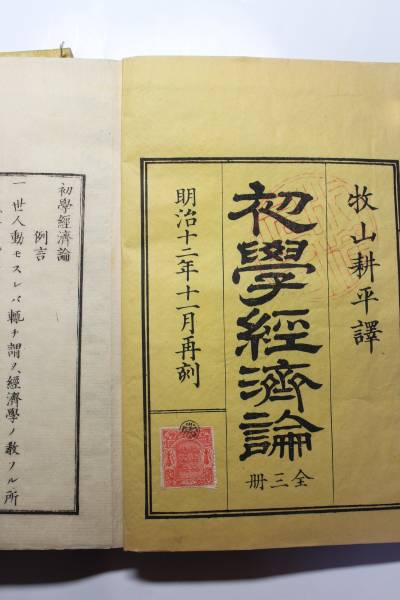 牧山耕平譯
初學經濟論
全三冊
明治十二年十一月再刻
初學經濟論
例言
一世人動モスレバ輙チ謂ヲ、經濟學ノ教ソル所